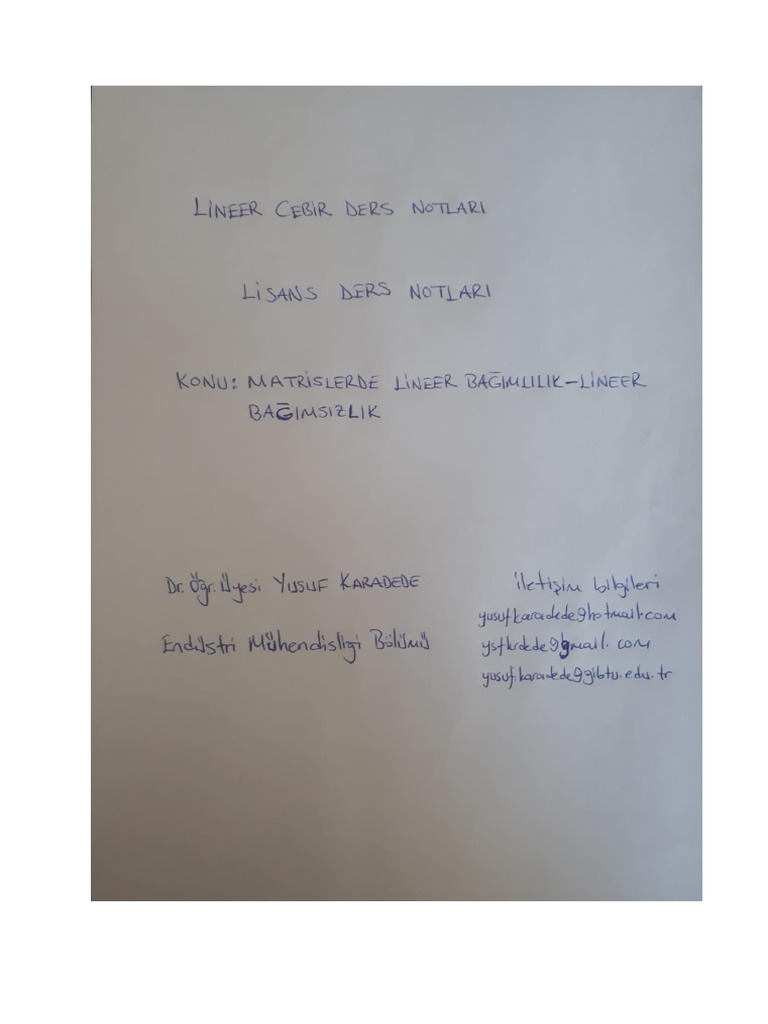 LİNEER CEBİR DERS NOTLARI
LİSANS DERS NOTLARI
KONU: MATRİSLERDE LİNEER BAĞIMLILIK-LİNEER
BAĞIMSIZLIK
Dr. Öğr. Üyesi YUSUF KARADEDE
Endüstri Mühendisliği Bölümü
İletişim bilgileri
yusufkaradede@hotmail.com
ystkrdede@gmail.com
yusuf.karadede@gibtu.edu.tr